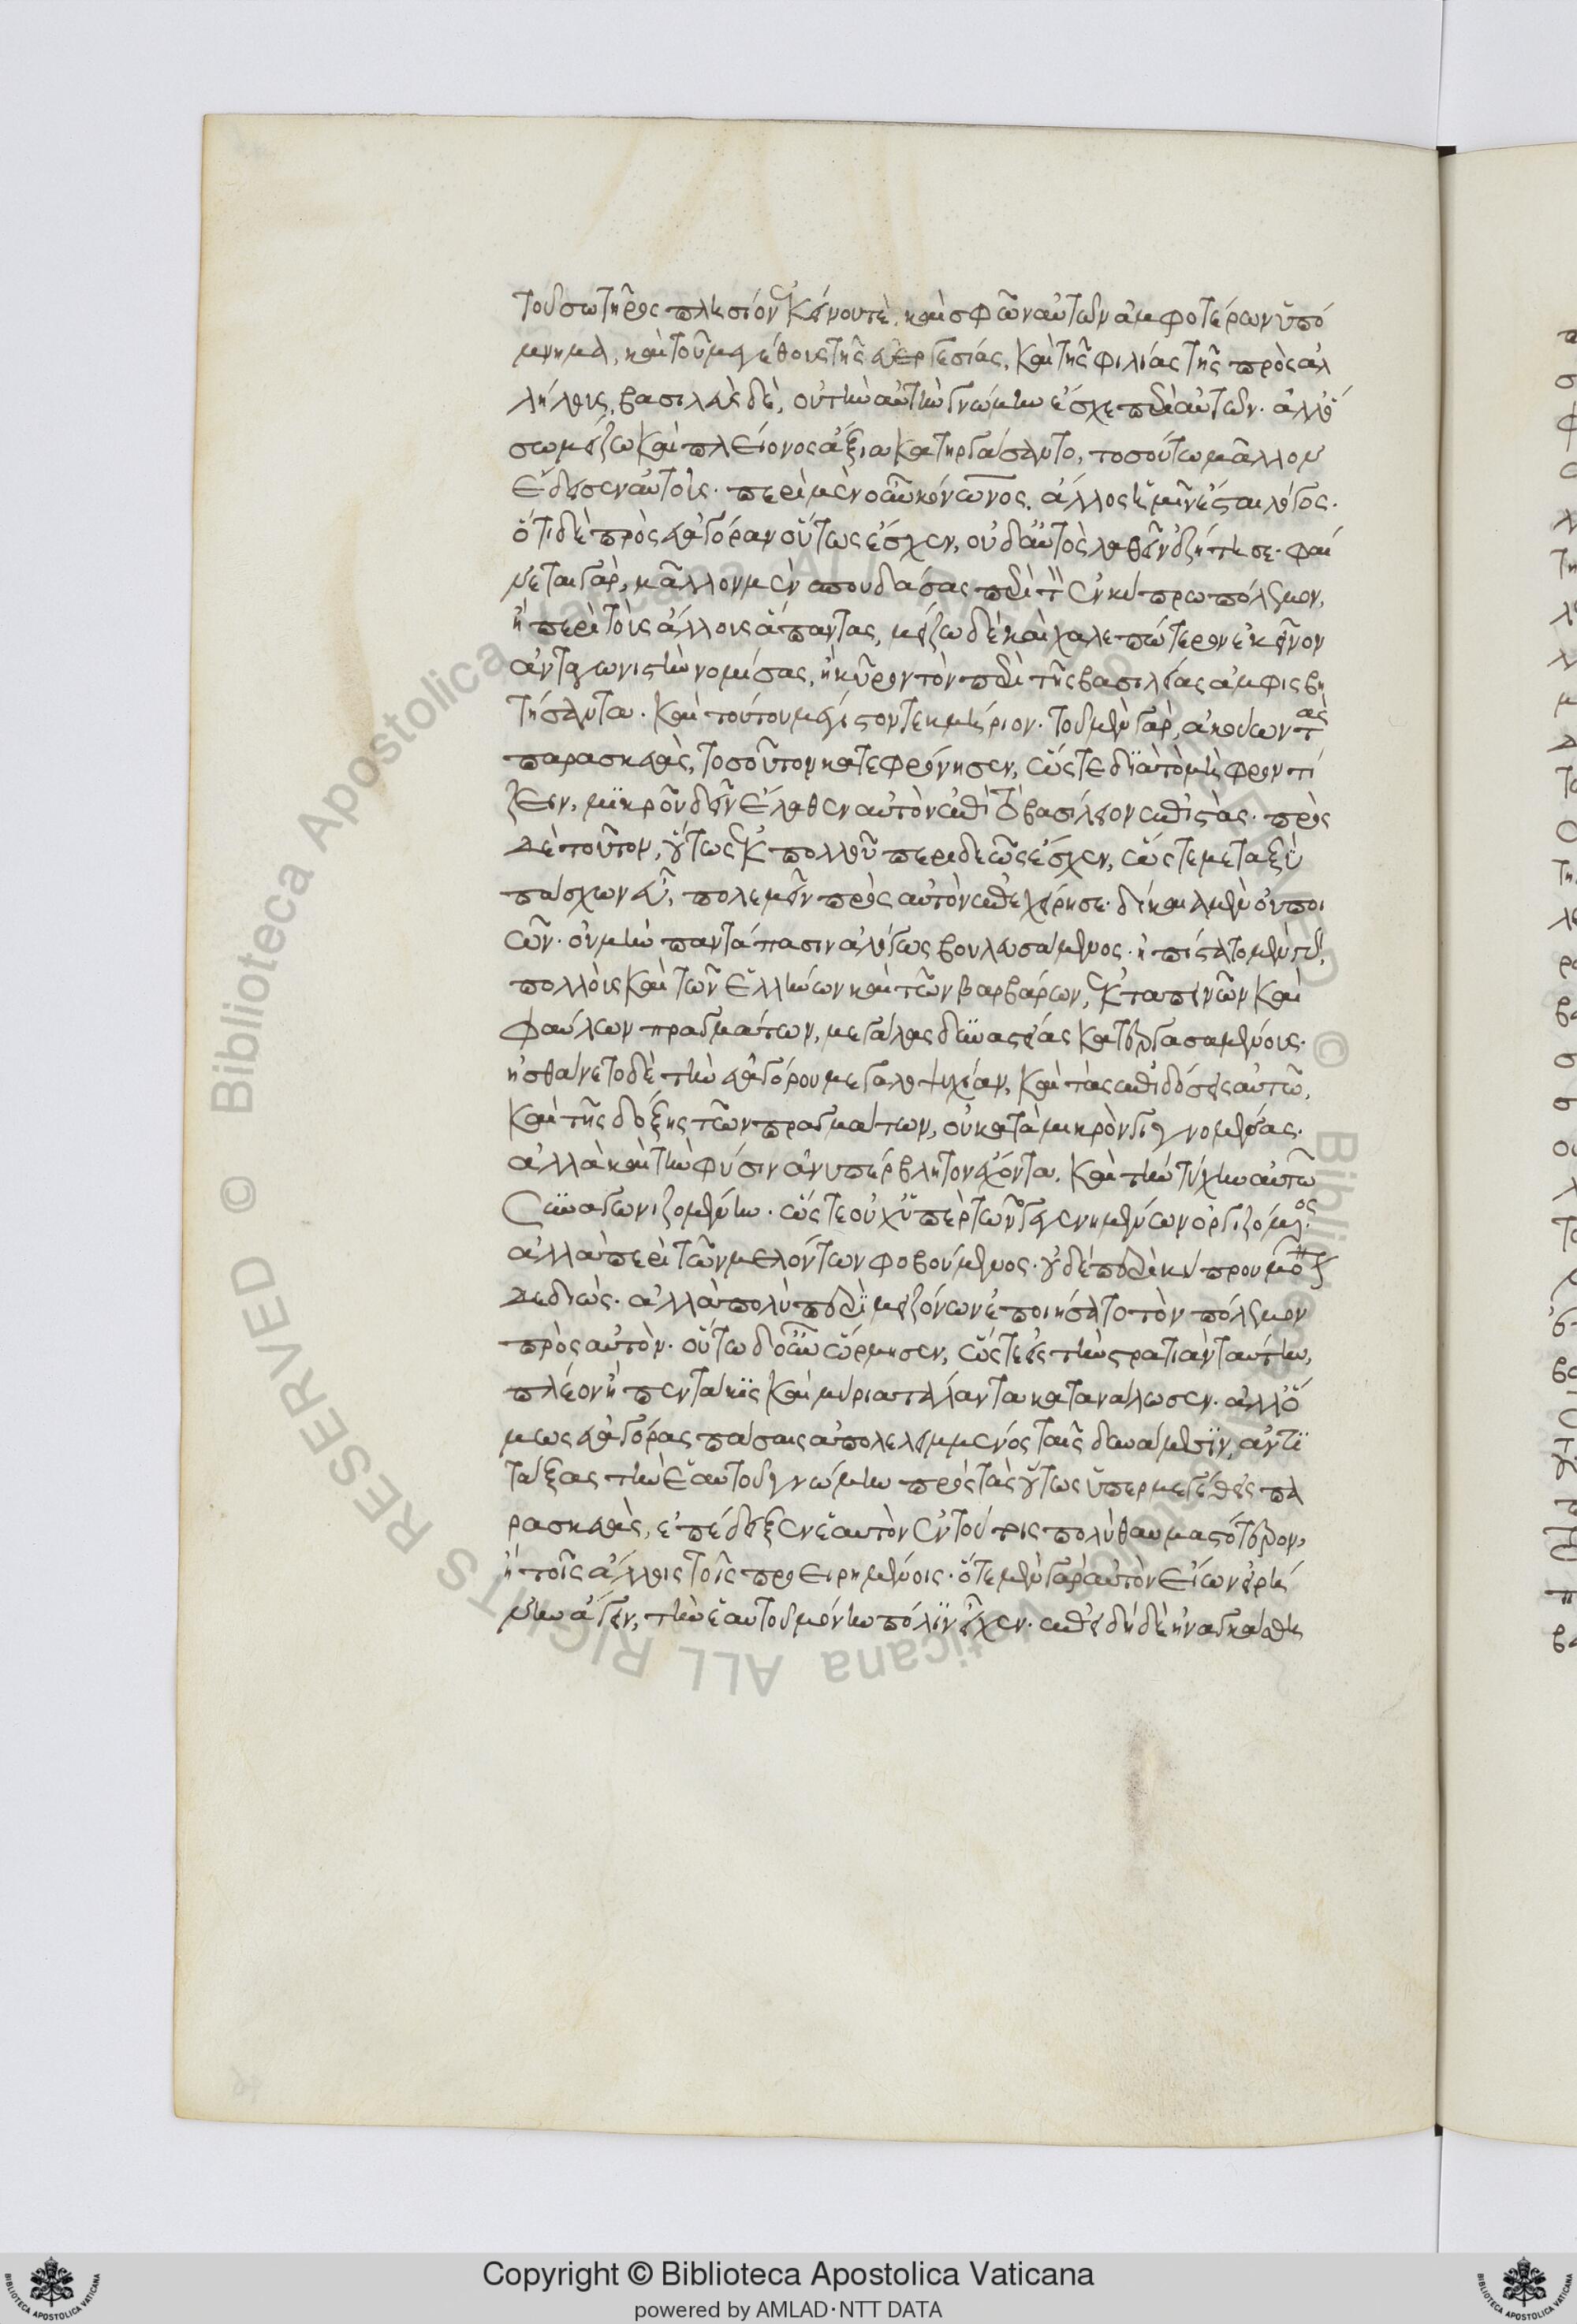 τοῦ σωτῆρος πλησίον ἐκείνου τὲ, καὶ σφῶν αὐτῶν ἀμφοτέρων ὑπό
μνημα, καὶ τοῦ μεγέθους τῆς εὐεργεσίας, καὶ τῆς φιλίας τῆς πρὸς ἀλ
λήλους, βασιλεὺς δὲ, οὐ τὴν αὐτὴν γνώμην ἔσχε περὶ αὐτῶν· ἀλλ' ὅ
σω μείζω καὶ πλείονος ἄξια κατηργάσαντο, τοσούτω μᾶλλον
ἔδεισεν αὐτοὺς· περὶ μὲν οὖν κόνωνος, ἄλλος ἡμῖν ἔσται λόγος·
ὅτι δὲ πρὸς εὐαγόραν οὕτως ἔσχεν, οὐδ' αὐτὸς λαθεῖν ἐζήτησε· φαί
νεται γὰρ, μᾶλλον μὲν σπουδάσας περὶ τὸν ἐν κύπρω πόλεμον,
ἢ περὶ τοὺς ἄλλους ἅπαντας, μείζω δὲ καὶ χαλεπώτερον ἐκεῖνον
ἀνταγωνιστὴν νομίσας, ἢ κῦρον τὸν περὶ τῆς βασιλείας ἀμφισβη
τήσαντα· καὶ τούτου μέγιστον τεκμήριον· τοῦ μὲν γὰρ, ἀκούων τὰς
παρασκευὰς, τοσοῦτον κατεφρόνησεν, ὥστε διὰ τὸ μὴ φροντί
ζειν, μικροῦ δεῖν ἔλαθεν αὐτὸν ἐπὶ τὸ βασίλειον ἐπιστάς· πρὸς
δὲ τοῦτον, οὕτως ἐκ πολλοῦ περιδεῶς ἔσχεν, ὥστε μεταξὺ
πάσχων εὖ, πολεμεῖν πρὸς αὐτὸν ἐπεχείρησε· δίκαια μὲν οὐ ποι
ῶν· οὐ μὴν παντάπασιν ἀλόγως βουλευσάμενος· ἠπίστατο μὲν γὰρ,
πολλοὺς καὶ τῶν ἑλλήνων καὶ τῶν βαρβάρων, ἐκ ταπεινῶν καὶ
φαύλων πραγμάτων, μεγάλας δυναστείας κατεργασαμένους·
ἠσθάνετο δὲ τὴν εὐαγόρου μεγαλοψυχίαν, καὶ τὰς ἐπιδόσεις αὐτῶ,
καὶ τῆς δόξης τῶν πραγμάτων, οὐ κατὰ μικρὸν γιγνομένας·
ἀλλὰ καὶ τὴν φύσιν ἀνυπέρβλητον ἔχοντα, καὶ τὴν τύχην αὐτῶ
συναγωνιζομένην· ὥστε οὐχ ὑπὲρ τῶν γεγενημένων ὀργιζόμενος·
ἀλλὰ περὶ τῶν μελόντων φοβούμενος· οὐδὲ περὶ κύπρου μόνον
δεδιώς· ἀλλὰ πολὺ περὶ μειζόνων ἐποιήσατο τὸν πόλεμον
πρὸς αὐτὸν· οὕτω δ' οὖν ὥρμησεν, ὥστε εἰς τὴν στρατιὰν ταύτην,
πλέον ἢ πεντακισκαὶμύρια τάλαντα κατανάλωσεν· ἀλλ' ὅ
μως εὐαγόρας πάσαις ἀπολελειμμενός ταῖς δυνάμεσιν, ἀντι
τάξας τὴν ἑαυτοῦ γνώμην πρὸς τὰς οὕτως ὑπερμεγέθεις πα
ρασκευὰς, ἐπέδειξεν ἑαυτὸν ἐν τούτοις πολὺ θαυμαστότερον,
ἢ τοῖς ἄλλοις τοῖς προειρημένοις· ὅτε μὲν γὰρ αὐτὸν εἴων εἰρή
νην ἄγειν, τὴν ἑαυτοῦ μόνην πόλιν εἶχεν· ἐπειδὴ δὲ ἠναγκάσθη